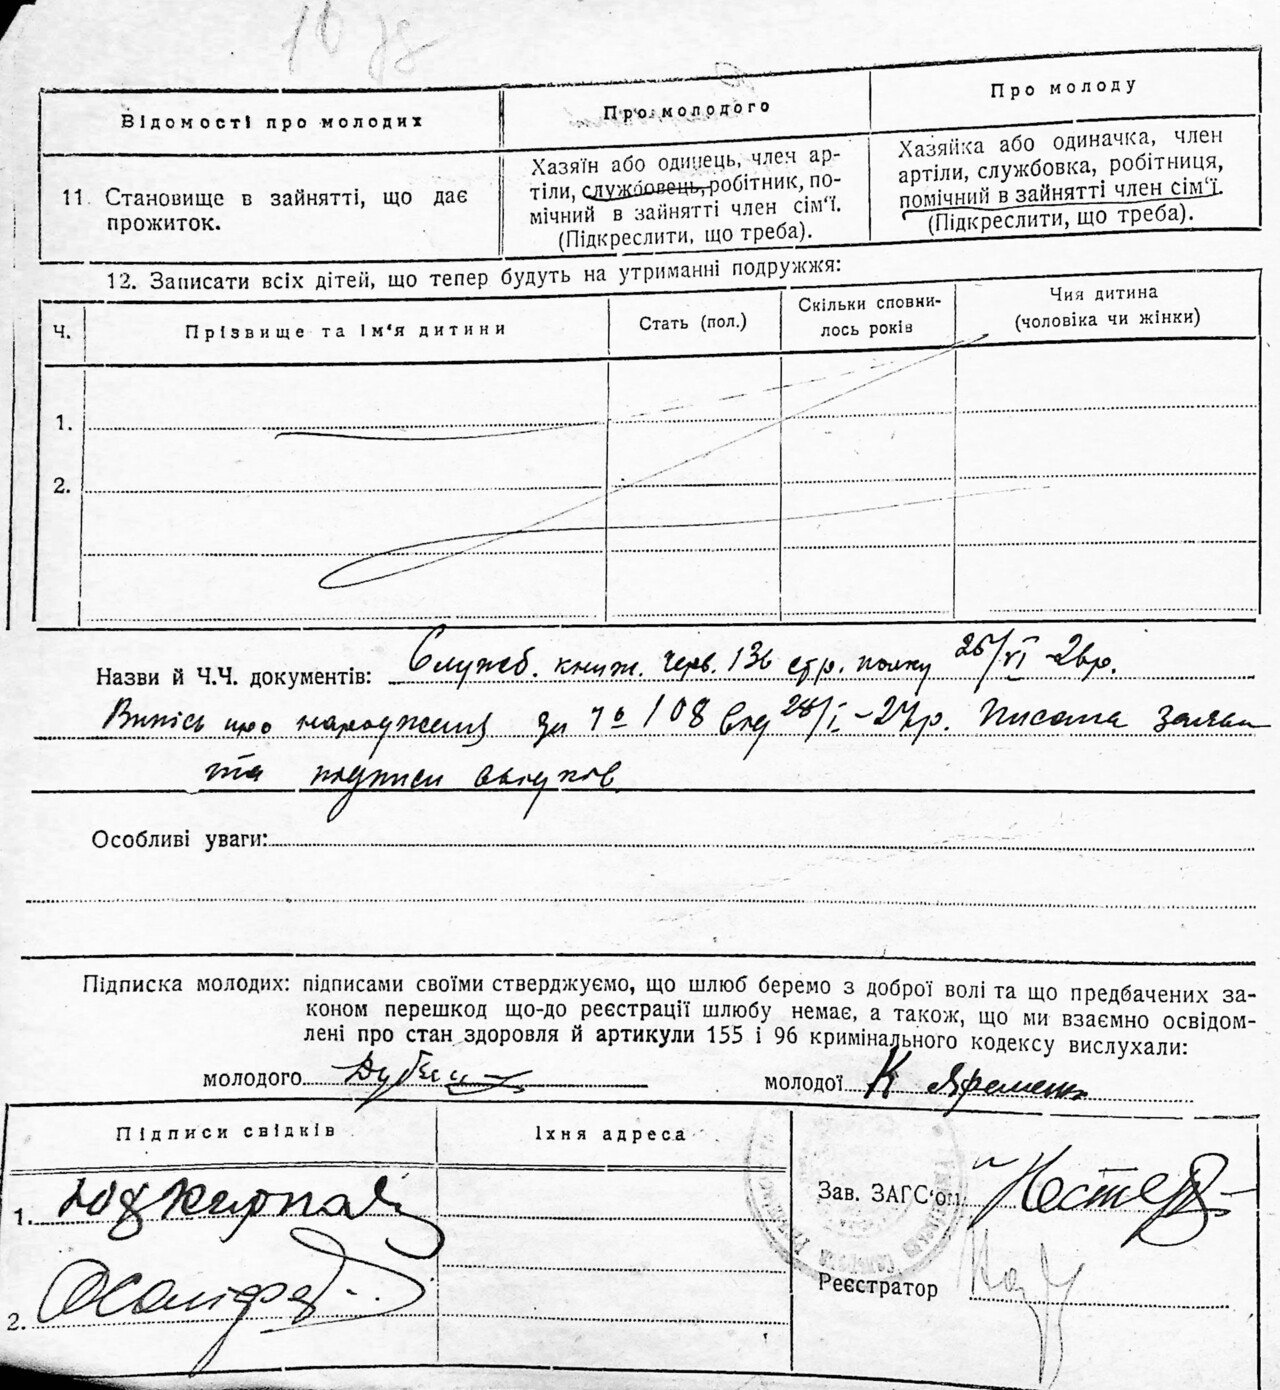 Відомості про молодих
Про молодого
Про молоду
11. Становище в зайнятті, що дає
прожиток.
Хазяїн або одинець, член ар-
тіли, службовець, робітник, по-
мічний в зайнятті член сім'ї.
(Підкреслити, що треба).
Хазяйка або одиначка, член
артіли, службовка, робітниця,
помічний в зайнятті член сім'ї.
(Підкреслити, що треба).
12. Записати всіх дітей, що тепер будуть на утриманні подружжя:
Ч.
Прізвище та ім'я дитини
Стать (пол.)
Скільки сповни-
лось років
Чия дитина
(чоловіка чи жінки)
1.
2.
Назви й Ч.Ч. документів: Служб. книж. черв. 136 стр. полку 25/VI-26р.
Випісь про народження за № 108 від 28/I-27р. Писана заява
та підписи свідків.
Особливі уваги:
Підписка молодих: підписами своїми стверджуємо, що шлюб беремо з доброї волі та що предбачених за-
коном перешкод що-до реєстрації шлюбу немає, а також, що ми взаємно освідом-
лені про стан здоровля й артикули 155 і 96 кримінального кодексу вислухали:
молодого
молодої К Яременко
Підписи свідків
Їхня адреса
1.
2.
Зав. ЗАГС'ом
Реєстратор